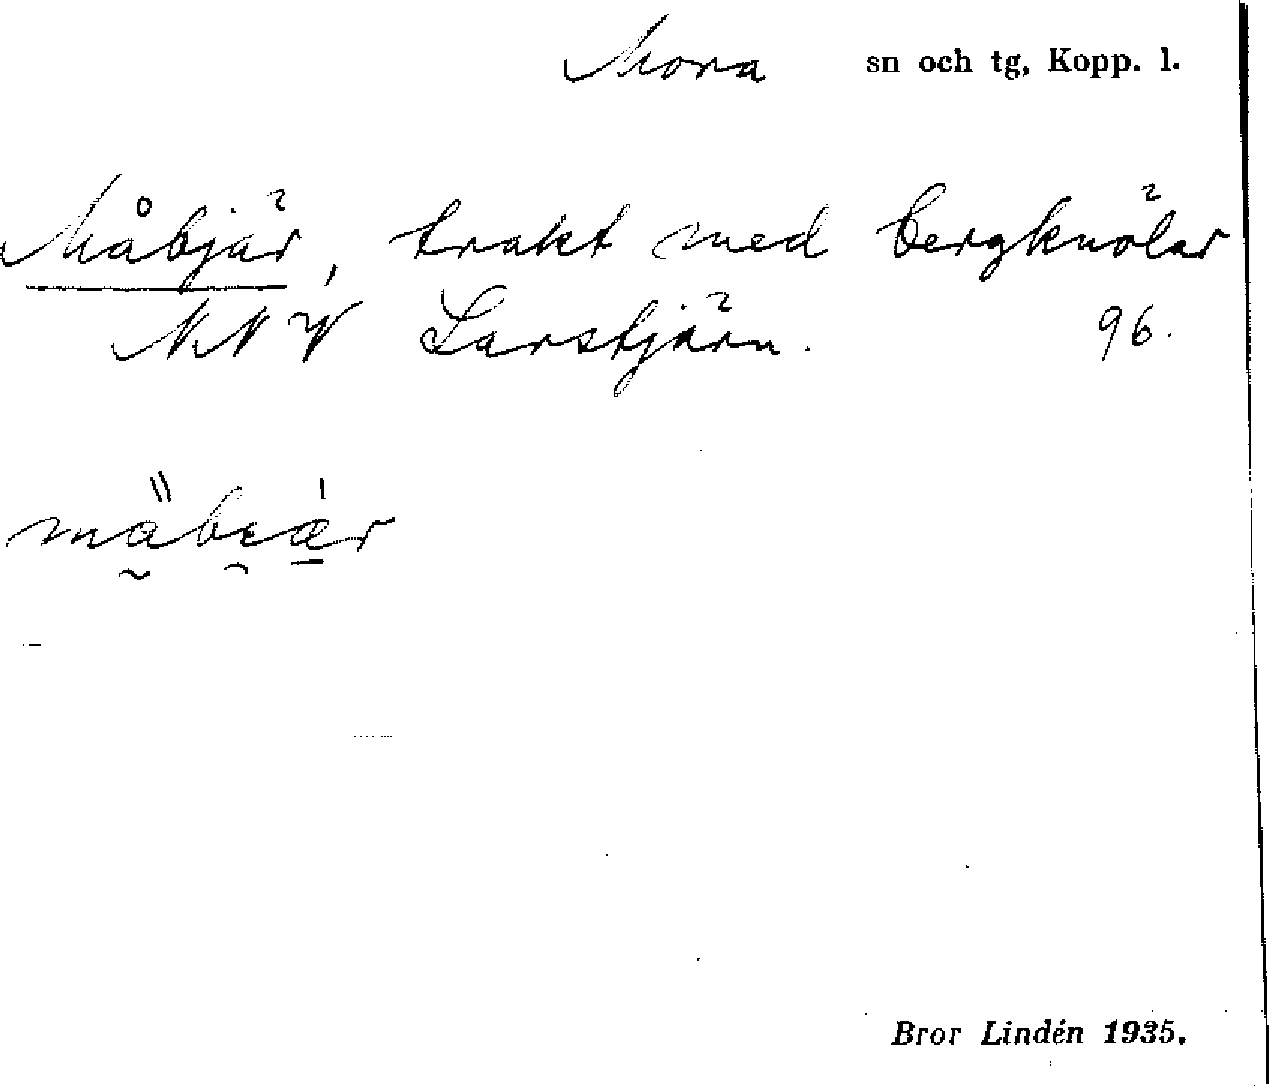 Mora sn och tg, Kopp. l.
Måbjär, trakt med bergknölar
NNV Larstjärn. 96.
Bror Lindén 1935.